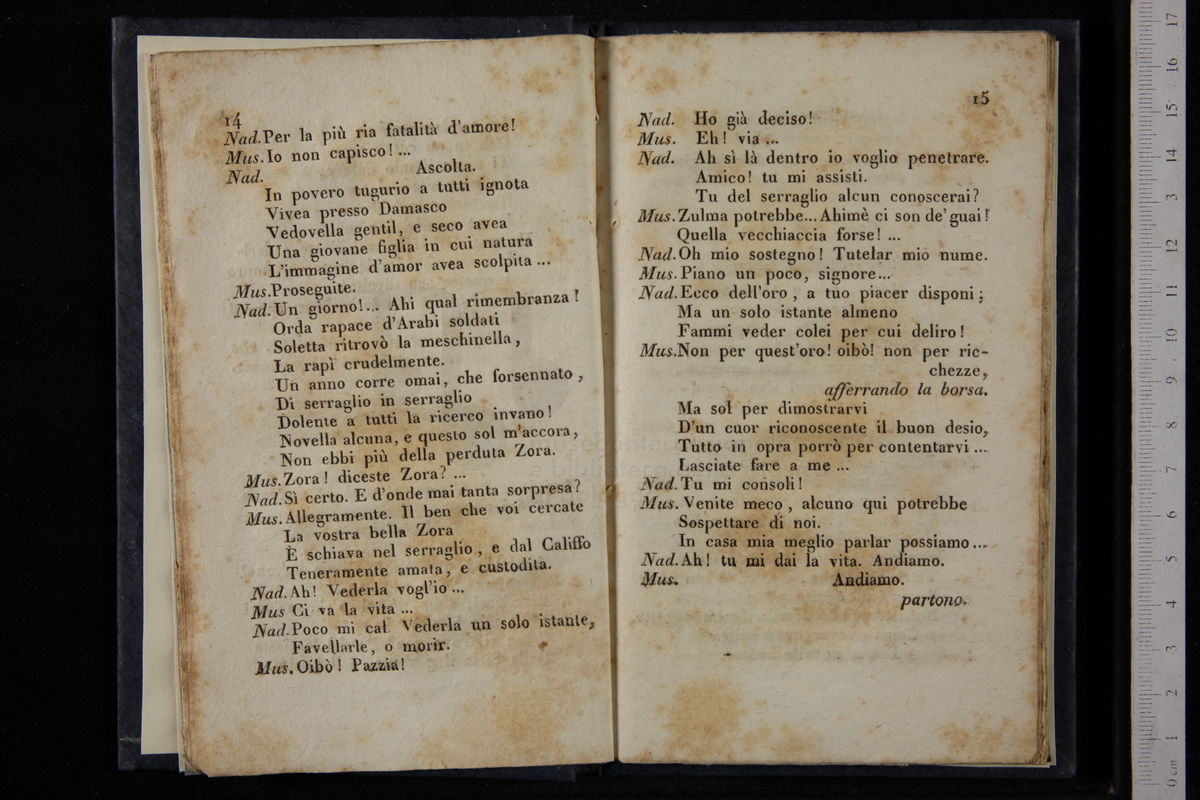 14
Nad. Per la più ria fatalità d'amore!
Mus. Io non capisco! ...
Nad. Ascolta.
In povero tugurio a tutti ignota
Vivea presso Damasco
Vedovella gentil, e seco avea
Una giovane figlia in cui natura
L'immagine d'amor avea scolpita ...
Mus. Proseguite.
Nad. Un giorno!... Ahi qual rimembranza!
Orda rapace d'Arabi soldati
Soletta ritrovò la meschinella,
La rapì crudelmente.
Un anno corre omai, che forsennato,
Di serraglio in serraglio
Dolente a tutti la ricerco invano!
Novella alcuna, e questo sol m'accora,
Non ebbi più della perduta Zora.
Mus. Zora! diceste Zora? ...
Nad. Sì certo. E d'onde mai tanta sorpresa?
Mus. Allegramente. Il ben che voi cercate
La vostra bella Zora
È schiava nel serraglio, e dal Califfo
Teneramente amata, e custodita.
Nad. Ah! Vederla vogl'io ...
Mus Ci va la vita ...
Nad. Poco mi cal. Vederla un solo istante,
Favellarle, o morir.
Mus. Oibò! Pazzia!
15
Nad. Ho già deciso!
Mus. Eh! via ...
Nad. Ah sì là dentro io voglio penetrare.
Amico! tu mi assisti.
Tu del serraglio alcun conoscerai?
Mus. Zulma potrebbe... Ahimè ci son de' guai!
Quella vecchiaccia forse! ...
Nad. Oh mio sostegno! Tutelar mio nume.
Mus. Piano un poco, signore...
Nad. Ecco dell'oro, a tuo piacer disponi;
Ma un solo istante almeno
Fammi veder colei per cui deliro!
Mus. Non per quest'oro! oibò! non per ric-
chezze,
afferrando la borsa.
Ma sol per dimostrarvi
D'un cuor riconoscente il buon desio,
Tutto in opra porrò per contentarvi ...
Lasciate fare a me ...
Nad. Tu mi consoli!
Mus. Venite meco, alcuno qui potrebbe
Sospettare di noi.
In casa mia meglio parlar possiamo...
Nad. Ah! tu mi dai la vita. Andiamo.
Mus. Andiamo.
partono.
0 cm 1 2 3 4 5 6 7 8 9 10 11 12 3 14 15 16 17